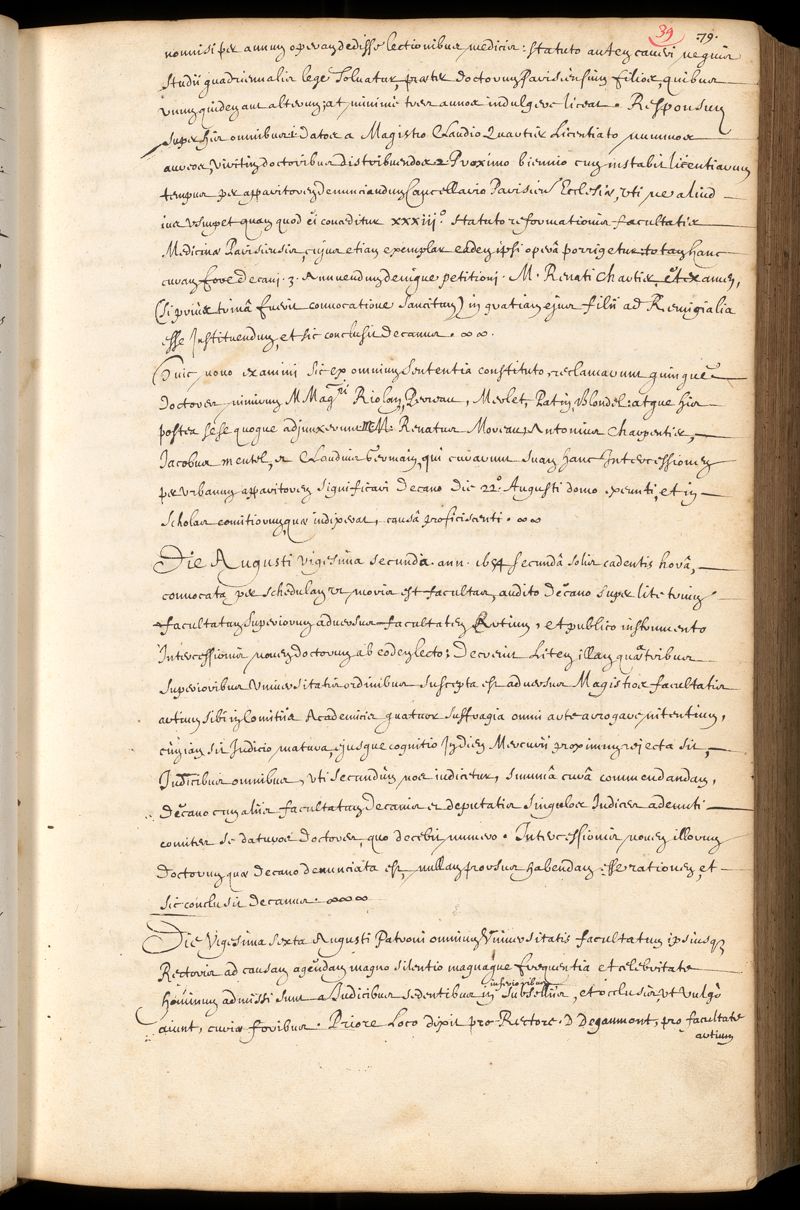 39 79.
nonnisi per annum operam dedisse lectionibus medicis: statuto autem caveri nequis
studii quadriennalis lege solvatur, præter doctorum parisiensium filios, quibus
unum quidem aut alterum, at minime tres annos indulgere liceat. Responsum
super his omnibus: Datos a Magistro Claudio Quartier Licentiato nummos
aureos viritim doctoribus distribuendos 2 Proximo biennio cum instabit licentiarum
tempus per apparitorem denunciandum Cancellario Parisien Ecclesiæ, uti ne aliud
ius usurpet quam quod ei conceditur XXXIII.° statuto reformationis facultatis
Medicinæ Parisiensis, cujus etiam exemplar eadem ipsi opera porrigetur: totam hanc
curam fore decani. 3. Annuendum denique petitioni. M. Renati Chartier, et examen,
(si prius trinâ fuerit convocatione sancitum) in gratiam ejus filii ad Remigialia
esse Instituendum, et sic conclusit Decanus. ∞ ∞.
Huic novo examini sic ex omnium sententia constituto, reclamarunt quinque
Doctores, nimirum MMag.ri Riolan, Perreau, Merlet, Patin, Blondel: atque his
postea sese quoque adjunxerunt MM. Renatus Moreau, Antonius Charpentier,
Jacobus mentel, et Claudius Germain, qui curarunt suam hanc Intercessionem
per urbanum apparitorem significari Decano Die 22.° Augusti domo exeunti, et in
scholas comitiorum quæ indixerat, causâ proficiscenti. ∞∞
Die Augusti vigesima secunda. ann. 1654 secundâ solis cadentis horâ,
convocata per schedulam ut moris est facultas, audito Decano super lite trium
facultatum superiorum adversus facultatem Artium, et publico instrumento
Intercessionis novem doctorum ab eodem lecto; Decrevit Litem illam quæ tribus
superioribus Universitatis ordinibus suscepta est adversus Magistros facultatis
artium sibi in Comitiis Academicis quatuor suffragia omni arte arrogare nitentium,
cum iam sit Judicio matura, ejusque cognitio In diem Mercurii proximum rejecta sit,
Judicibus omnibus, uti secundum nos iudicetur, summâ curâ commendandam,
Decano cum aliis facultatum Decanis et deputatis singulos Judices adeunti
comites se daturos doctores, quo decebit numero. Intercessionis novem illorum
Doctorum quæ Decano denunciata est, nullam prorsus habendam esse rationem, et
sic conclusit decanus. ∞∞∞
Die vigesima sexta Augusti Patroni omnium Universitatis facultatum ipsiusq
Rectoris ad causam agendam magno silentio magnaque frequentia et celebritate
Hominum admissi sunt a Judicibus sedentibus in inferioribus Subselliis, et occlusis ut vulgo
aiunt, curiæ foribus. Priore Loco dixit pro Rectore. D Degaumont, pro facultate
artium